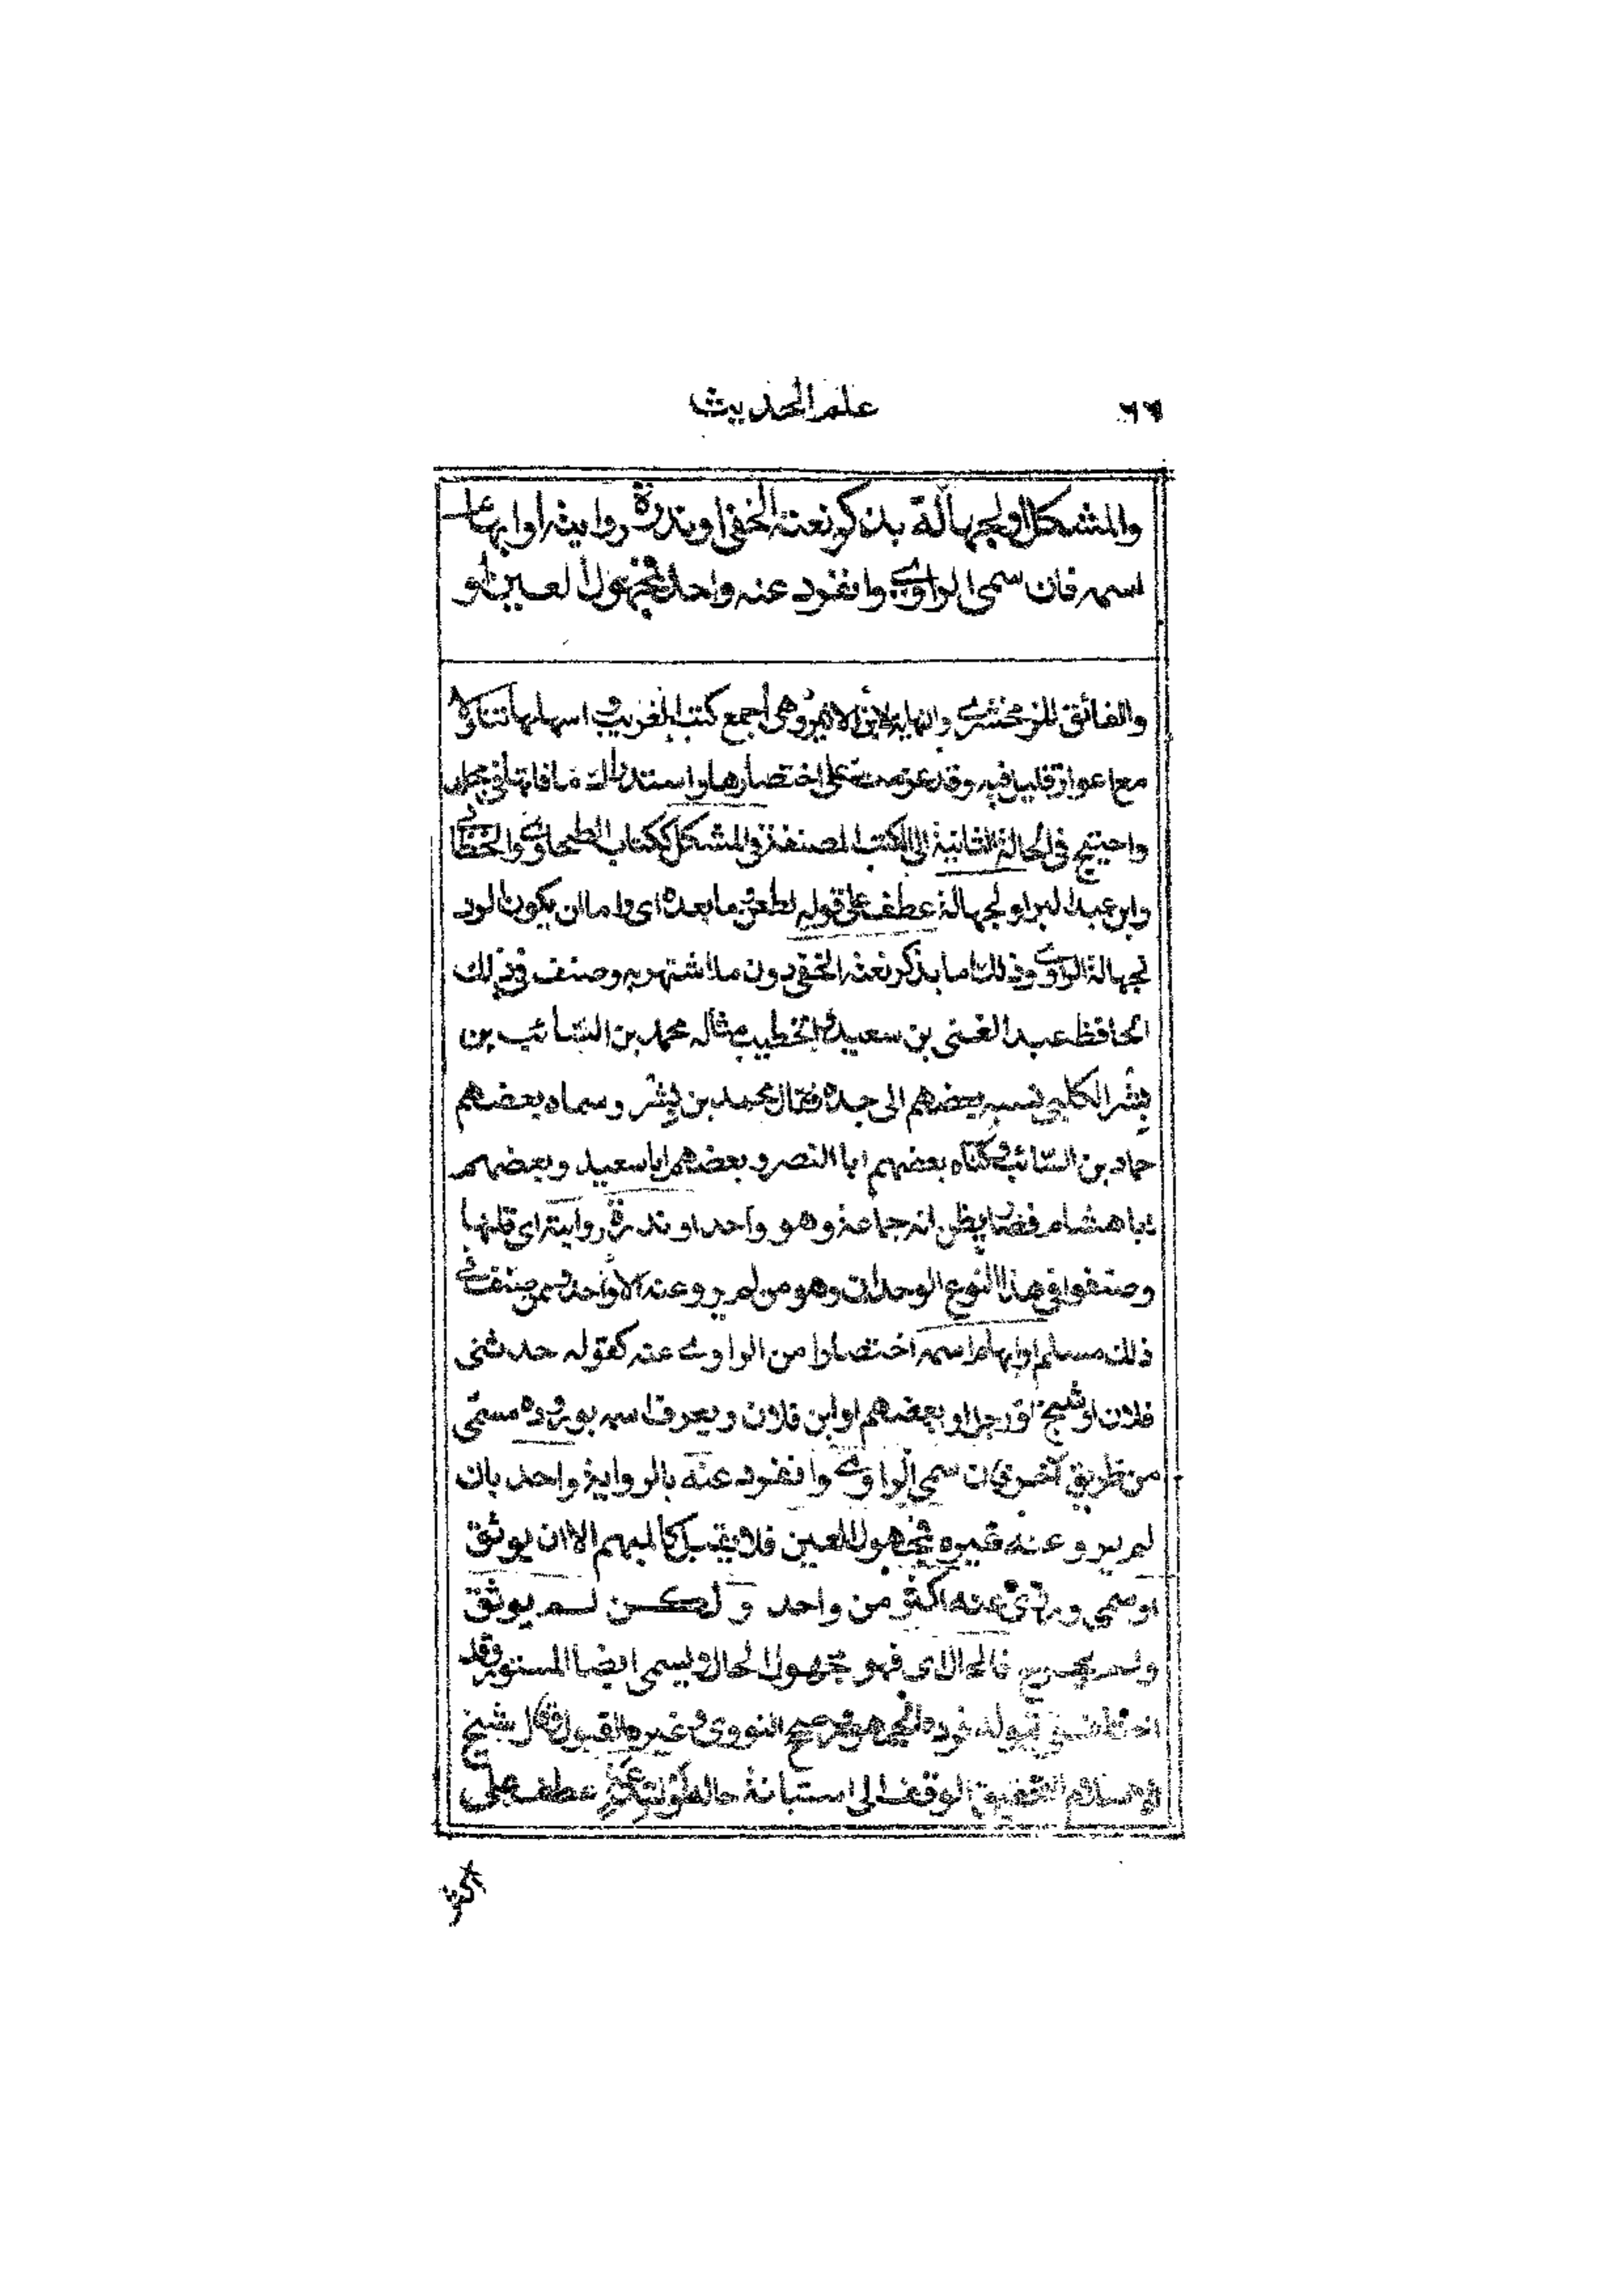 ٦٦ علم الحديث
والمشكل او لجهالة بذكر نعته الخفى او ندرة روايته او ابهام
اسمه فان سمى الراوي وانفرد عنه واحد فمجهول العين او
والفائق للزمخشري والنهاية لابن الاثير وهى اجمع كتب الغريب واسهلها تناولا
مع اعواز قليل فيه وقد عزمت على اختصارها واستدراك ما فاتها في مجلد
واحتيج في الحالة الثانية الى الكتب المصنفة في المشكل ككتاب الطحاوي والخطابي
وابن عبد البر او لجهالة عطف على قوله لطعن وما بعده اى واما ان يكون الرد
لجهالة الراوي وذلك اما بذكر نعته الخفي دون ما اشتهر به وصنف في ذلك
الحافظ عبد الغنى بن سعيد والخطيب مثاله محمد بن السائب بن
بشر الكلبي نسبه بعضهم الى جده فقال محمد بن بشر وسماه بعضهم
حماد بن السائب وكناه بعضهم ابا النصر وبعضهم ابا سعيد وبعضهم
ابا هشام فصار يظن انه جماعة وهو واحد او ندرة روايته اى قلتها
وصنفوا في هذا النوع الوحدان وهو من لم يرو عنه الا واحد وممن صنف في
ذلك مسلم او ابهام اسمه اختصارا من الراوي عنه كقوله حدثنى
فلان او شيخ او رجل او بعضهم او ابن فلان ويعرف اسمه بوروده مسمى
من طريق آخر فان سمى الراوي وانفرد عنه بالرواية واحد بان
لم يرو عنه غيره فمجهول العين فلا يقبل كالمبهم الا ان يوثق
او سمي وروى عنه اكثر من واحد و لكن لم يوثق
ولم يجرح فالحال اى فهو مجهول الحال ويسمى ايضا المستور وقد
اختلف في قبوله فرده الجمهور وصحح النووى وغيره القبول وقال شيخ
الاسلام التحقيق الوقف الى استبانة حاله او لبدعة عطف على